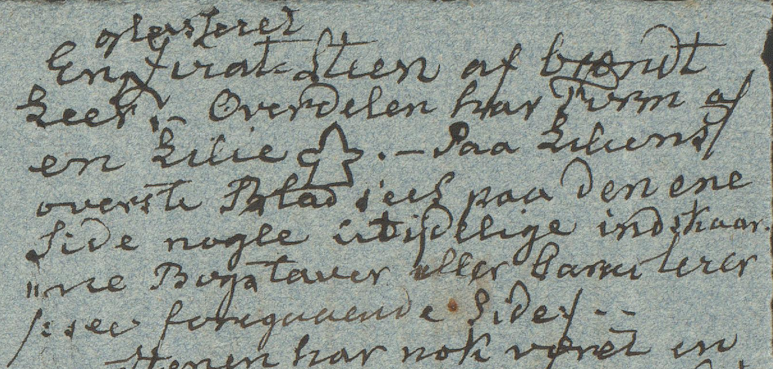 glasseret
En Pirat-Steen af brændt
Leer. – Overdelen har Form af
en Lilie . – Paa Liliens
överste Blad sees paa den ene
Side nogle utÿdelige indskaar-
"ne Bogstaver eller Caracterer
/: see foregaaende Side :/ . –
Stenen har nok været en